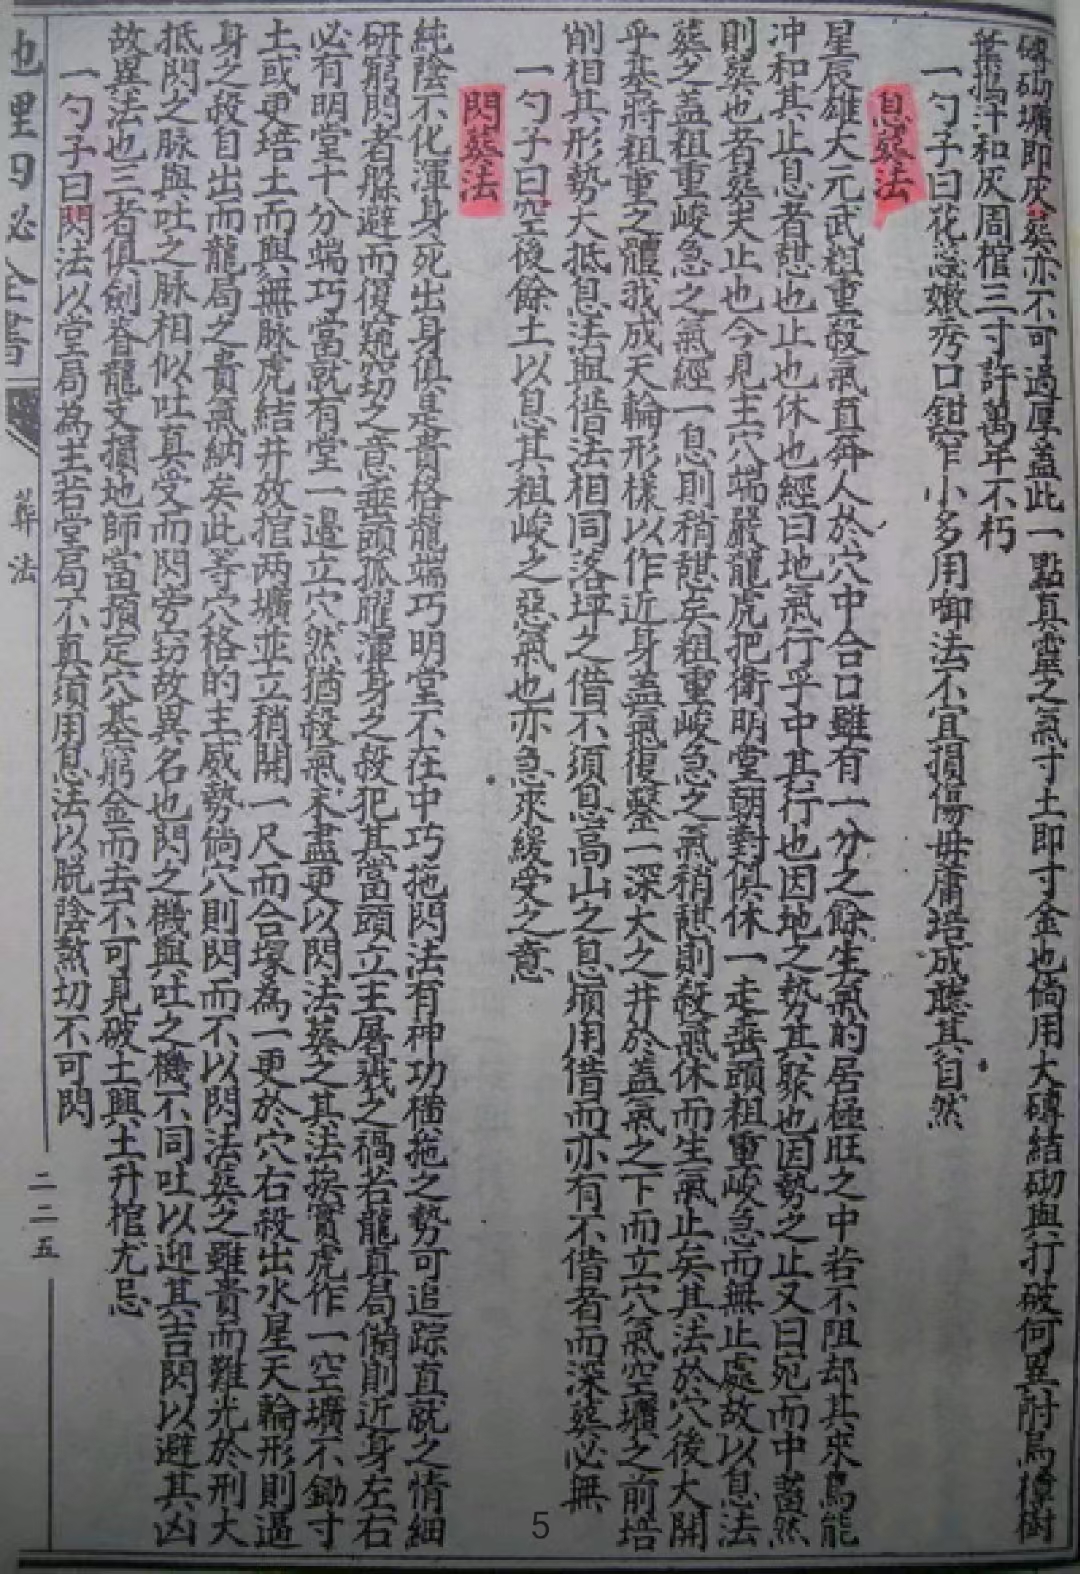 磚砌壙即灰葬亦不可過厚蓋此一點真靈之氣寸土即寸金也倘用大磚結砌與打破何異附烏樟樹
葉搗汁和灰周棺三寸許萬年不朽
一勺子曰花蕊嫩秀口鉗窄小多用啣法不宜損傷毋庸培成聽其自然
息葬法
星辰雄大元武粗重殺氣直奔人於穴中合口雖有一分之餘生氣的居極旺之中若不阻却其來烏能
冲和其止息者憩也止也休也經曰地氣行乎中其行也因地之勢其聚也因勢之止又曰宛而中蓄然
則葬也者葬夫止也今見主穴端嚴龍虎把衛明堂朝對俱休一走垂頭粗重峻急而無止處故以息法
葬之蓋粗重峻急之氣經一息則稍憩矣粗重峻急之氣稍憩則殺氣休而生氣止矣其法於穴後大開
乎基將粗重之體我成天輪形樣以作近身蓋氣復鑿一深大之井於蓋氣之下而立穴氣空壙之前培
削相其形勢大抵息法與借法相同落坪之借不須息高山之息須用借而亦有不借者而深葬必無
一勺子曰空後餘土以息其粗峻之惡氣也亦急來緩受之意
閃葬法
純陰不化渾身死出身俱是貴格龍端巧明堂不在中巧拖閃法有神功橫拖之勢可追踪直就之情細
研窮閃者躲避而復窺竊之意垂頭孤曜渾身之殺犯其當頭立主屠戮之禍若龍真局備則近身左右
必有明堂十分端巧當就有堂一邊立穴然猶殺氣未盡更以閃法葬之其法挨實虎作一空壙不鋤寸
土或更培土而與無脉虎結井放棺兩壙並立稍開一尺而合塚為一更於穴右殺出水星天輪形則過
身之殺自出而龍局之貴氣納矣此等穴格的主威勢倘穴則閃而不以閃法葬之雖貴而難光於刑大
抵閃之脉與吐之脉相似吐真受而閃旁竊故異名也閃之機與吐之機不同吐以迎其吉閃以避其凶
故異法也三者俱劍脊龍文損地師當預定穴基躬金而去不可見破土興土升棺尤忌
一勺子曰閃法以堂局為主若堂局不真須用息法以脱陰煞切不可閃
地理四必全書
葬法
二二五
5